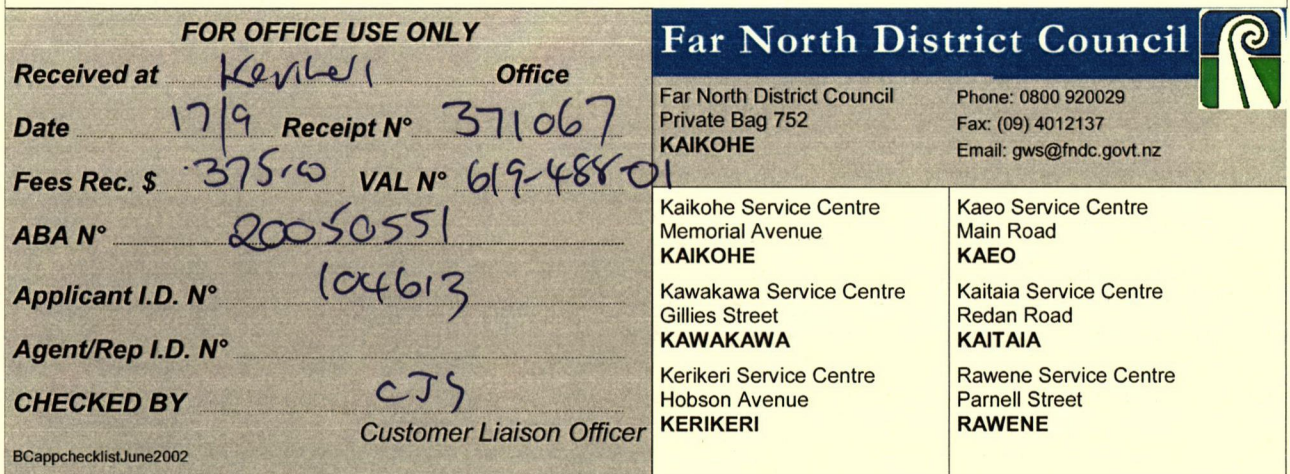 FOR OFFICE USE ONLY
Received at Kerikeri Office
Date 17/9 Receipt N° 371067
Fees Rec. $ 375.00 VAL N° 619-488-01
ABA N° 20050551
Applicant I.D. N° 104613
Agent/Rep I.D. N°
CHECKED BY CJS
Customer Liaison Officer
BCappchecklistJune2002
Far North District Council
Far North District Council
Private Bag 752
KAIKOHE
Phone: 0800 920029
Fax: (09) 4012137
Email: gws@fndc.govt.nz
Kaikohe Service Centre
Memorial Avenue
KAIKOHE
Kaeo Service Centre
Main Road
KAEO
Kawakawa Service Centre
Gillies Street
KAWAKAWA
Kaitaia Service Centre
Redan Road
KAITAIA
Kerikeri Service Centre
Hobson Avenue
KERIKERI
Rawene Service Centre
Parnell Street
RAWENE